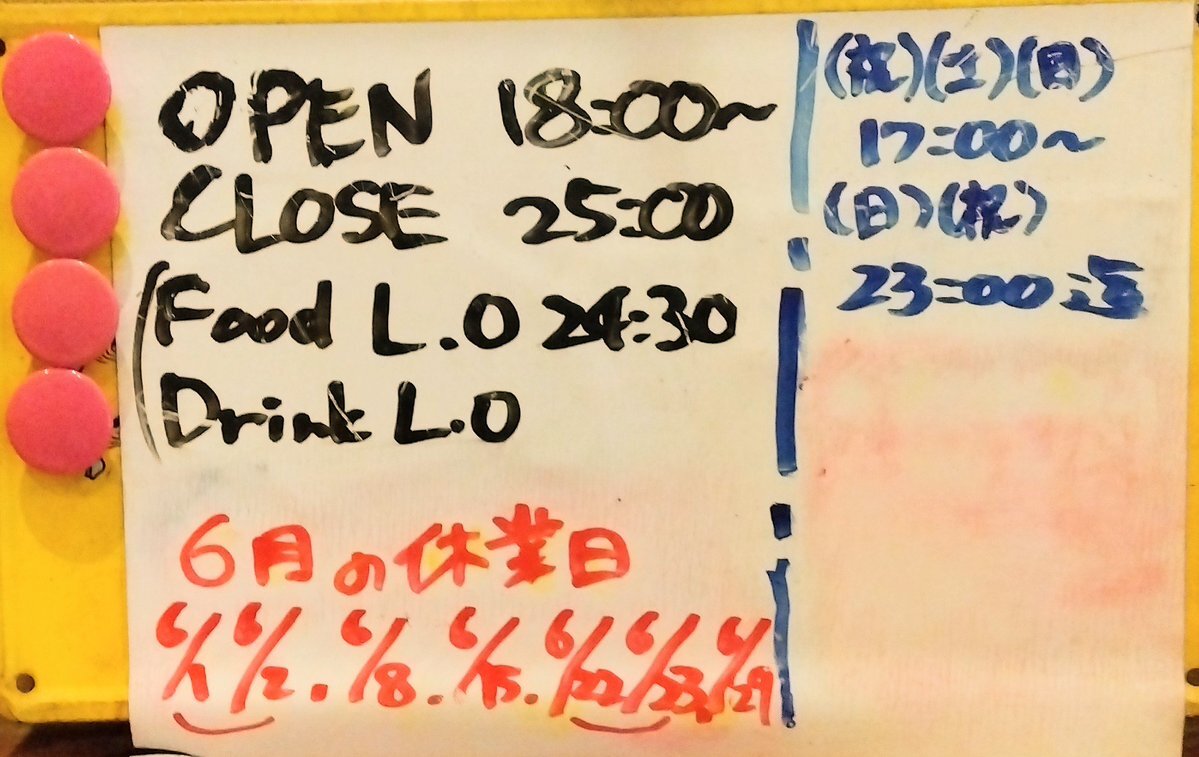 OPEN 18:00~
CLOSE 25:00
(Food L.O 24:30
Drink L.O
6月の休業日
6/1 6/2. 6/8. 6/15. 6/22 6/23. 6/29
(祝)(土)(日)
17:00~
(日)(祝)
23:00迄